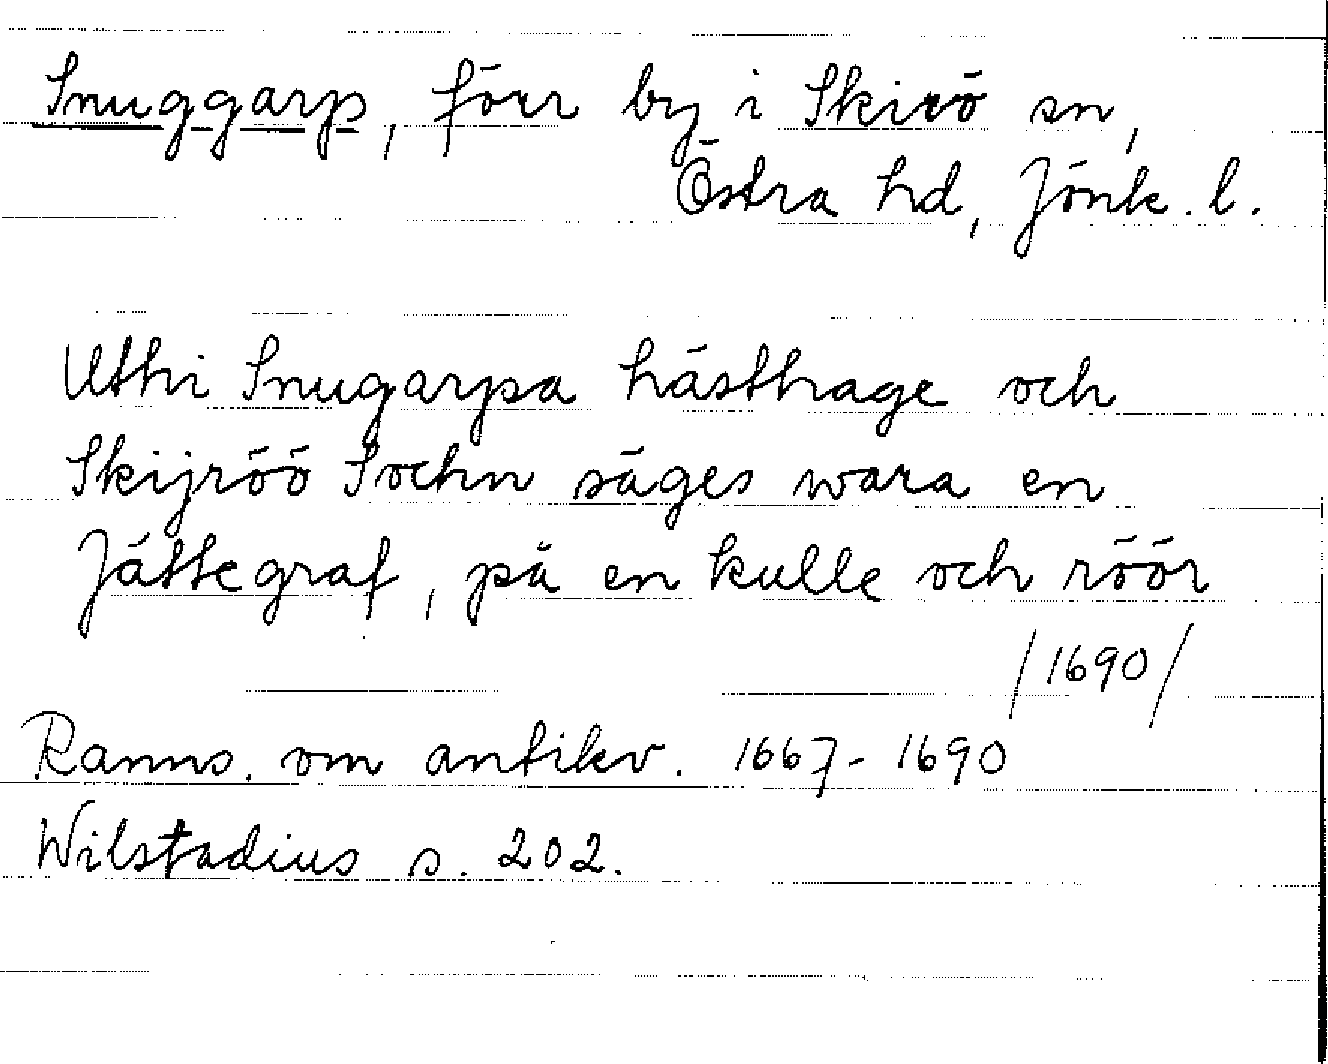 Snuggarp, förr by i Skirö sn,
Östra hd, Jönk. l.
Uthi Snugarpa hästhage och
Skijröö Sochn säges wara en
Jättegraf, på en kulle och röör
/1690/
Ranns. om antikv. 1667-1690
Wilstadius s. 202.